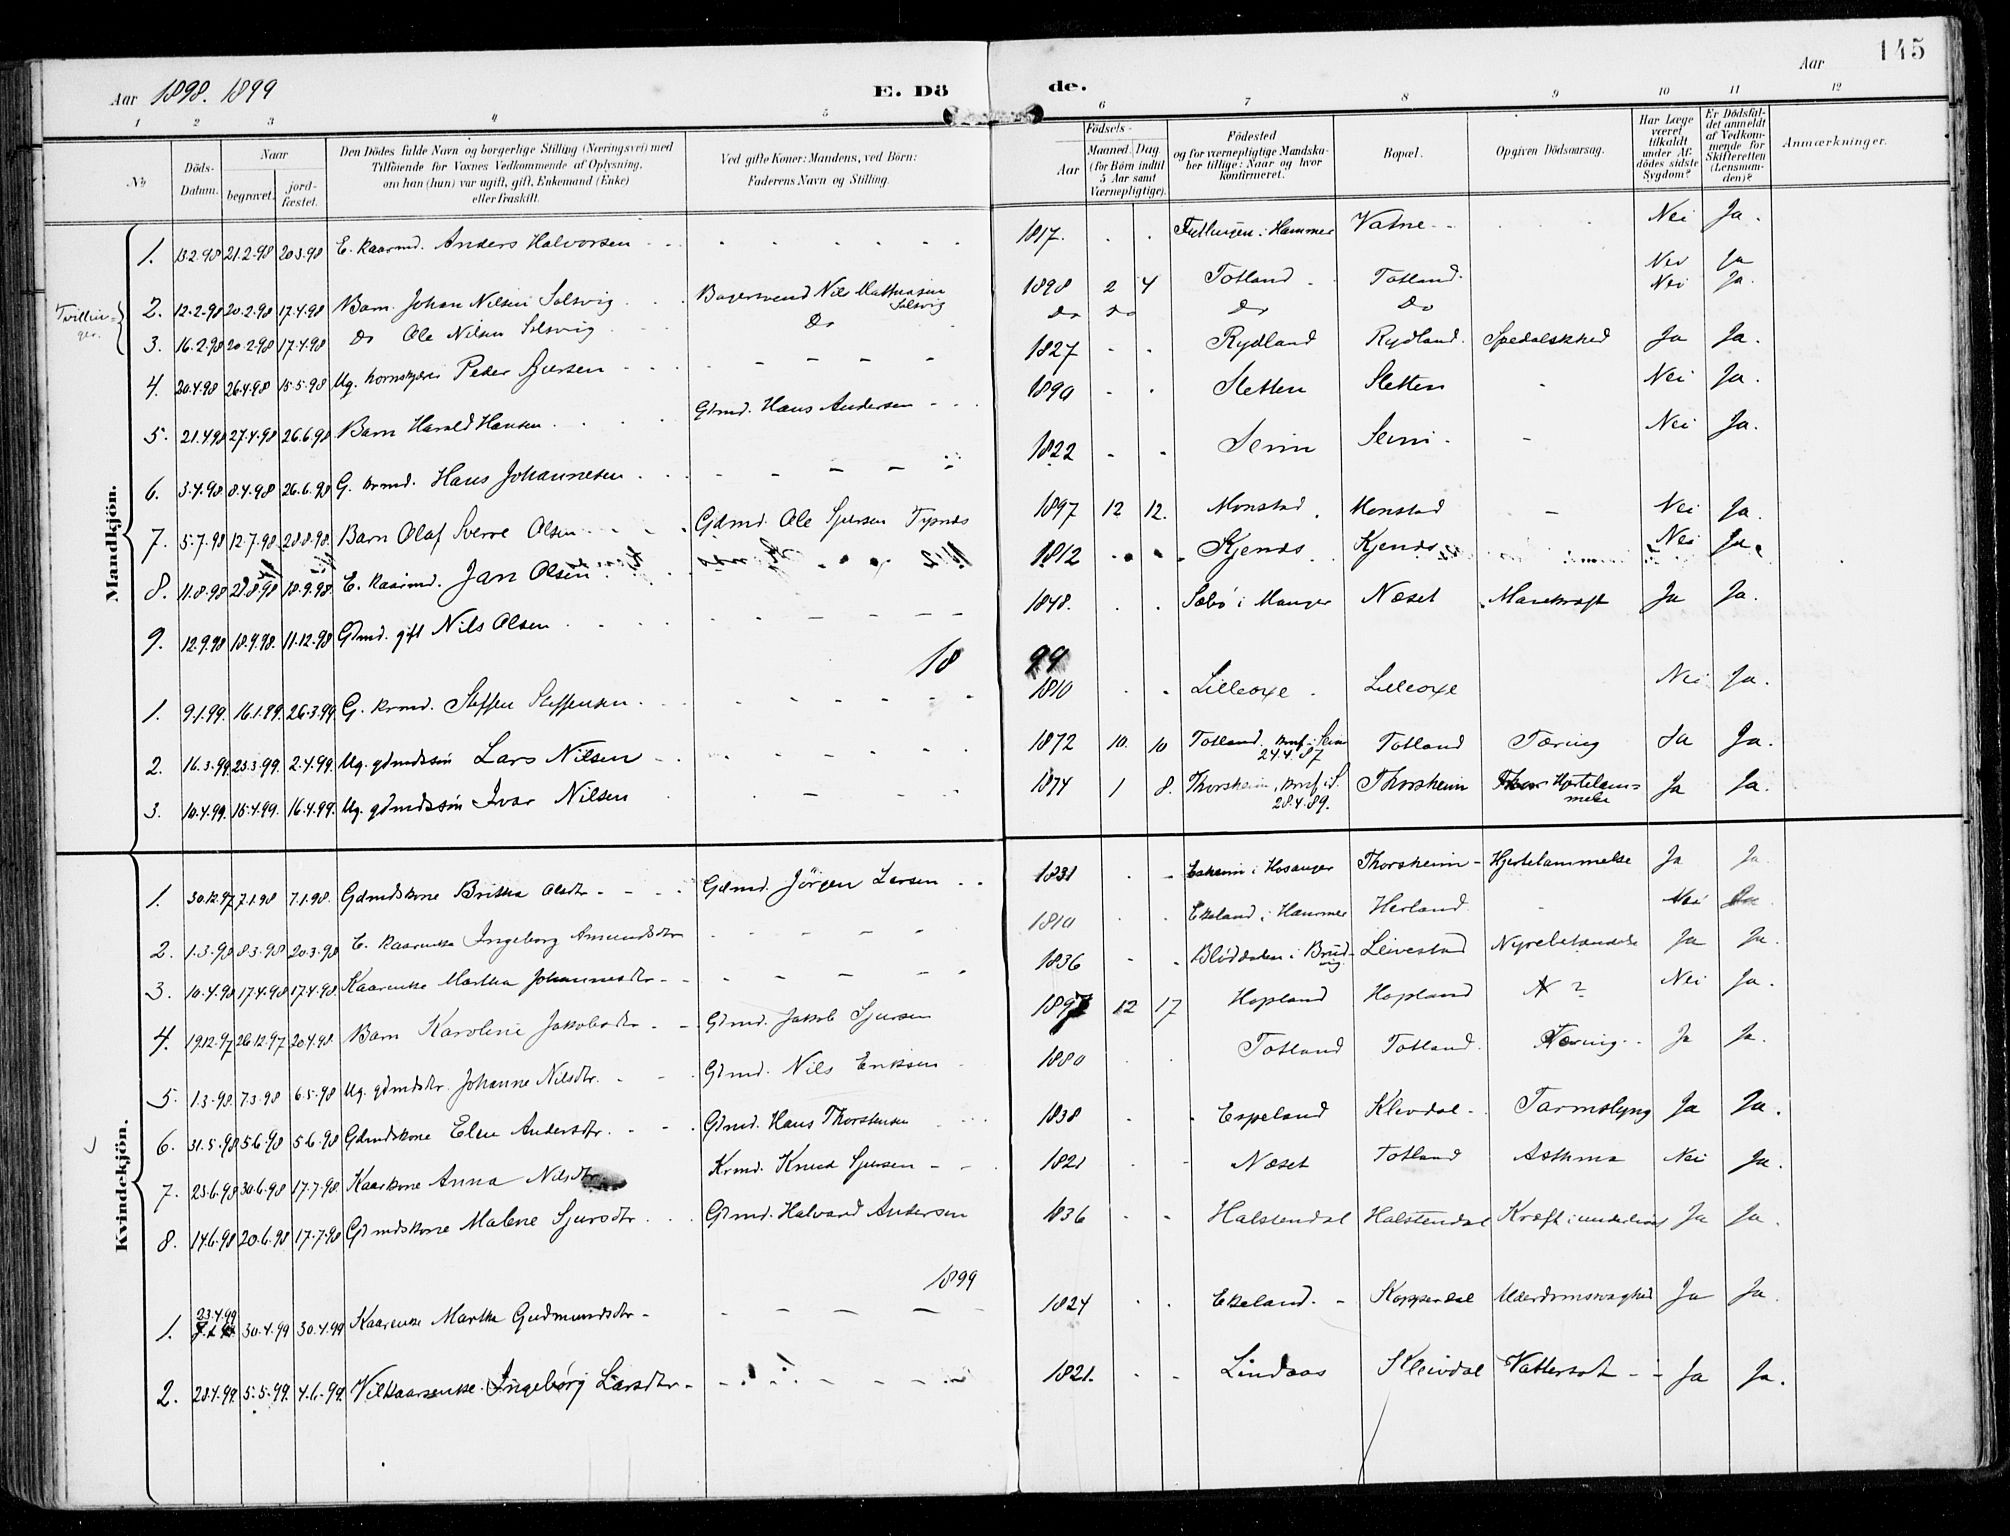 Aar 1898. 1899 E. Dö de. Aar 145
1 2 3 4 5 6 7 8 9 10 11 12
No
Döds-Datum.
Naar
begravet.
jord-fæstet.
Den Dödes fulde Navn og borgerlige Stilling (Næringsvei) med
Tilföiende for Voxnes Vedkommende af Oplysning,
om han (hun) var ugift, gift, Enkemand (Enke)
eller fraskilt.
Ved gifte Koner: Mandens, ved Börn:
Faderens Navn og Stilling.
Födsels-
Aar
Maaned. Dag
(for Börn indtil
5 Aar samt
Værnepligtige).
Födested
og for værnepligtige Mandska-
ber tillige: Naar og hvor
konfirmeret.
Bopæl.
Opgiven Dödsaarsag.
Har Læge
været
tilkaldt
under Af-
dödes sidste
Sygdom?
Er Dödsfal-
det anmeldt
af Vedkom-
mende for
Skifteretten
(Lensman-
den)?
Anmærkninger.
Mandkjön.
1. 13.2.98 21.2.98 20.3.98 E. kaarmd. Anders Halvorsen 1817. i Hammer Vatne Nei Ja.
Tvillin-
ger.
2. 12.2.98 20.2.98 17.4.98 Barn Johan Nilsen Solsvig Nils Mathiasen Solsvig 1898 2 4 Totland Totland Nei Ja
3. 16.2.98 20.2.98 17.4.98 Do Ole Nilsen Solsvig Do Do Do Do Do Nei Ja.
4. 20.4.98 26.4.98 15.5.98 Ug. Peder Sjursen 1827 Rydland Rydland Spedalskhed Ja Ja.
5. 21.4.98 27.4.98 26.6.98 Barn Harald Hansen Gdmd. Hans Andersen 1890 Sletten Sletten Nei Ja.
6. 3.4.98 8.4.98 26.6.98 G. krmd. Hans Johannesen 1822 Seim Seim Nei Ja.
7. 5.7.98 12.7.98 28.8.98 Barn Olaf Sverre Olsen Gdmd. Ole Sjursen 1897 12 12. Monstad Monstad Nei Ja.
8. 11.8.98 21.8.98 18.9.98 E. kaarmd. Jan Olsen 1812 Kjenås Kjenås Nei Ja.
9. 12.9.98 18.9.98. 11.12.98 Gdmd. gift Nils Olsen 1848. Sæbö i Manger Næset Mavekræft Ja Ja.
1899
1. 9.1.99. 16.1.99. 26.3.99 G. krmd. Steffen Steffensen 1810 Lilleoxe Lilleoxe Nei Ja.
2. 16.3.99 23.3.99. 2.4.99. Ug. gdmdssön Lars Nilsen 1872 10. 10 Totland, konf. i Seim 24.4.87 Totland Tæring Ja Ja.
3. 10.4.99. 15.4.99. 16.4.99. Ug. gdmdssön Ivar Nilsen 1874 1 8. Thorsheim, konf. i S. 28.4.89. Thorsheim Hjertelam-
melse Ja Ja.
Kvindekjön.
1. 30.12.97 7.1.98 7.1.98. Gdmdskone Britha Olsdtr Gdmd. Jörgen Larsen 1831 Eaheim i Hosanger Thorsheim Hjertelammelse Ja Ja.
2. 1.3.98 8.3.98 20.3.98 E. kaarenke Ingeborg Amundsdtr 1810 Ekeland i Hammer Herland Nei Ja
3. 10.4.98 17.4.98 17.4.98. Kaarenke Martha Johannesdtr 1836 i Bruvig Leivestad Nyrebetændelse Ja Ja.
4. 19.12.97 26.12.97 20.4.98. Barn Karoline Jakobsdtr Gdmd. Jakob Sjursen 1897 12 17 Hopland Hopland ? Nei Ja.
5. 1.3.98. 7.3.98 6.5.98 Ug. gdmdsdtr. Johanne Nilsdtr. Gdmd. Nils Eriksen 1880 Totland Totland Tæring Ja Ja.
6. 31.5.98 5.6.98 5.6.98 Gdmdskone Elen Andersdtr. Gdmd. Hans Thorstensen 1838 Espeland Kleivdal Tarmslyng Ja Ja.
7. 23.6.98 30.6.98 17.7.98 Kaarkone Anna Nilsdtr Krmd. Knud Sjursen 1821 Næset Totland Asthma Nei Ja.
8. 14.6.98 20.6.98 17.7.98 Gdmdskone Malene Sjursdtr Gdmd. Halvard Andersen 1836 Halstendal Halstendal Kræft i underlivet Ja Ja.
1899
1. 23.4.99 30.4.99 30.4.99 Kaarenke Martha Gudmundsdtr 1824 Ekeland Kopperdal Alderdomssvaghed Ja Ja.
2. 28.4.99. 5.5.99. 4.6.99. Vilkaarsenke Ingebörg Larsdtr 1821. Lindaas Kleivdal Vattersot Ja Ja.